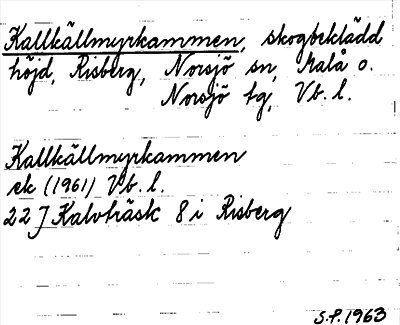 Kallkällmyrkammen, skogbeklädd
höjd, Risberg, Norsjö sn, Malå o.
Norsjö tg, Vb. l.
Kallkällmyrkammen
ek (1961) Vb. l.
22 J Kalvträsk 8 i Risberg
S.P. 1963